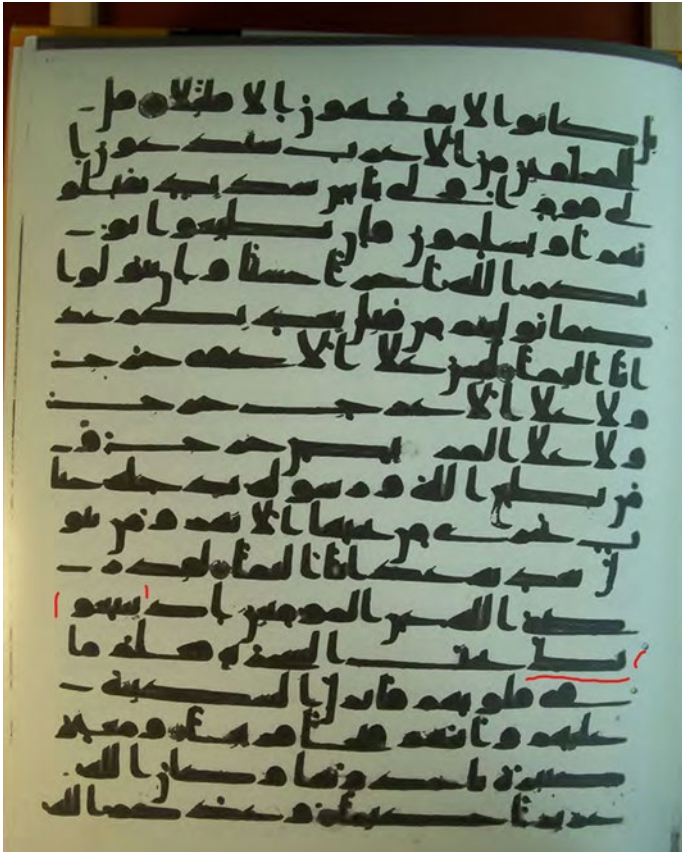 بل كانوا لا يفقهون الا قليلا قل
للمخلفين من الاعراب ستدعون ا
لى قوم اولى باس شديد تقتلو
نهم او يسلمون فان تطيعوا يو
تكم الله اجرا حسنا وان تتولوا
كما توليتم من قبل يعذبكم عذ
ابا اليما ليس على الاعمى حرج
ولا على الاعرج حرج
ولا على المريض حرج و
من يطع الله ورسوله يدخله جنا
ت تجري من تحتها الانهر ومن يتو
ل يعذبه عذابا اليما لقد ر
ضى الله عن المومنين اذ يبيعو
نك تحت الشجرة فعلم ما
فى قلوبهم فانزل السكينة
عليهم واثبهم فتحا قريبا ومغنم
كثيرة ياخذونها وكان الله
عزيزا حكيما وعدكم الله